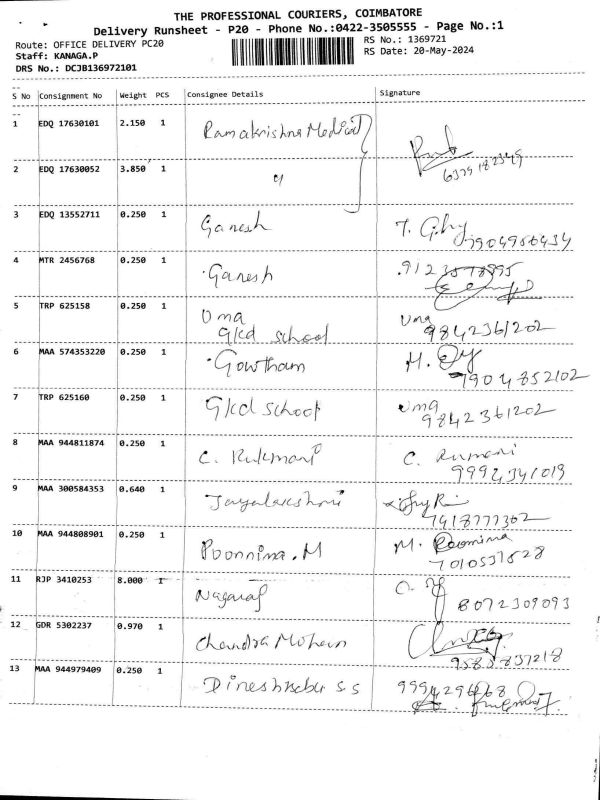 THE PROFESSIONAL COURIERS, COIMBATORE
Delivery Runsheet - P20 - Phone No.:0422-3505555 - Page No.:1
Route: OFFICE DELIVERY PC20
RS No.: 1369721
Staff: KANAGA.P
RS Date: 20-May-2024
DRS No.: DCJB136972101
S No Consignment No Weight PCS Consignee Details Signature
1 EDQ 17630101 2.150 1 Ramakrishna Medical
2 EDQ 17630052 3.850 1 "
6379182349
3 EDQ 13552711 0.250 1 Ganesh T.
7904956434
4 MTR 2456768 0.250 1 Ganesh
5 TRP 625158 0.250 1 Uma Uma
Gkd school 9842361202
6 MAA 574353220 0.250 1 Gowtham M.
7904852102
7 TRP 625160 0.250 1 Gkd school Uma
9842361202
8 MAA 944811874 0.250 1 C. Rukmani C.
9994341019
9 MAA 300584353 0.640 1 Jayalakshmi
7418777302
10 MAA 944808901 0.250 1 Poornima.M M. Poornima
7010537528
11 RJP 3410253 8.000 1 Nagaraj
8072309093
12 GDR 5302237 0.970 1 Chandra Mohan
9585837218
13 MAA 944979409 0.250 1 Dineshbabu S.S